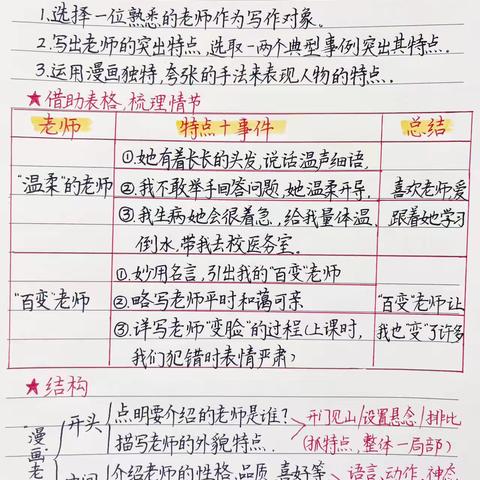 1.选择一位熟悉的老师作为写作对象。
2.写出老师的突出特点,选取一两个典型事例突出其特点.
3.运用漫画独特,夸张的手法来表现人物的特点.
★借助表格,梳理情节
老师 特点+事件 总结
"温柔"的老师
①她有着长长的头发,说话温声细语,
②我不敢举手回答问题,她温柔开导.
③我生病她会很着急,给我量体温,
倒水,带我去校医务室。
喜欢老师,爱
跟着她学习
"百变"老师
①妙用名言,引出我的"百变"老师
②略写老师平时和蔼可亲
③详写老师"变脸"的过程(上课时,
我们犯错时表情严肃)
"百变"老师让
我也"变"了许多
★结构
"漫画老
开头
点明要介绍的老师是谁?
描写老师的外貌特点.
开门见山/设置悬念/排比
(抓特点,整体一局部)
介绍老师的性格、品质、喜好等
语言、动作、神态